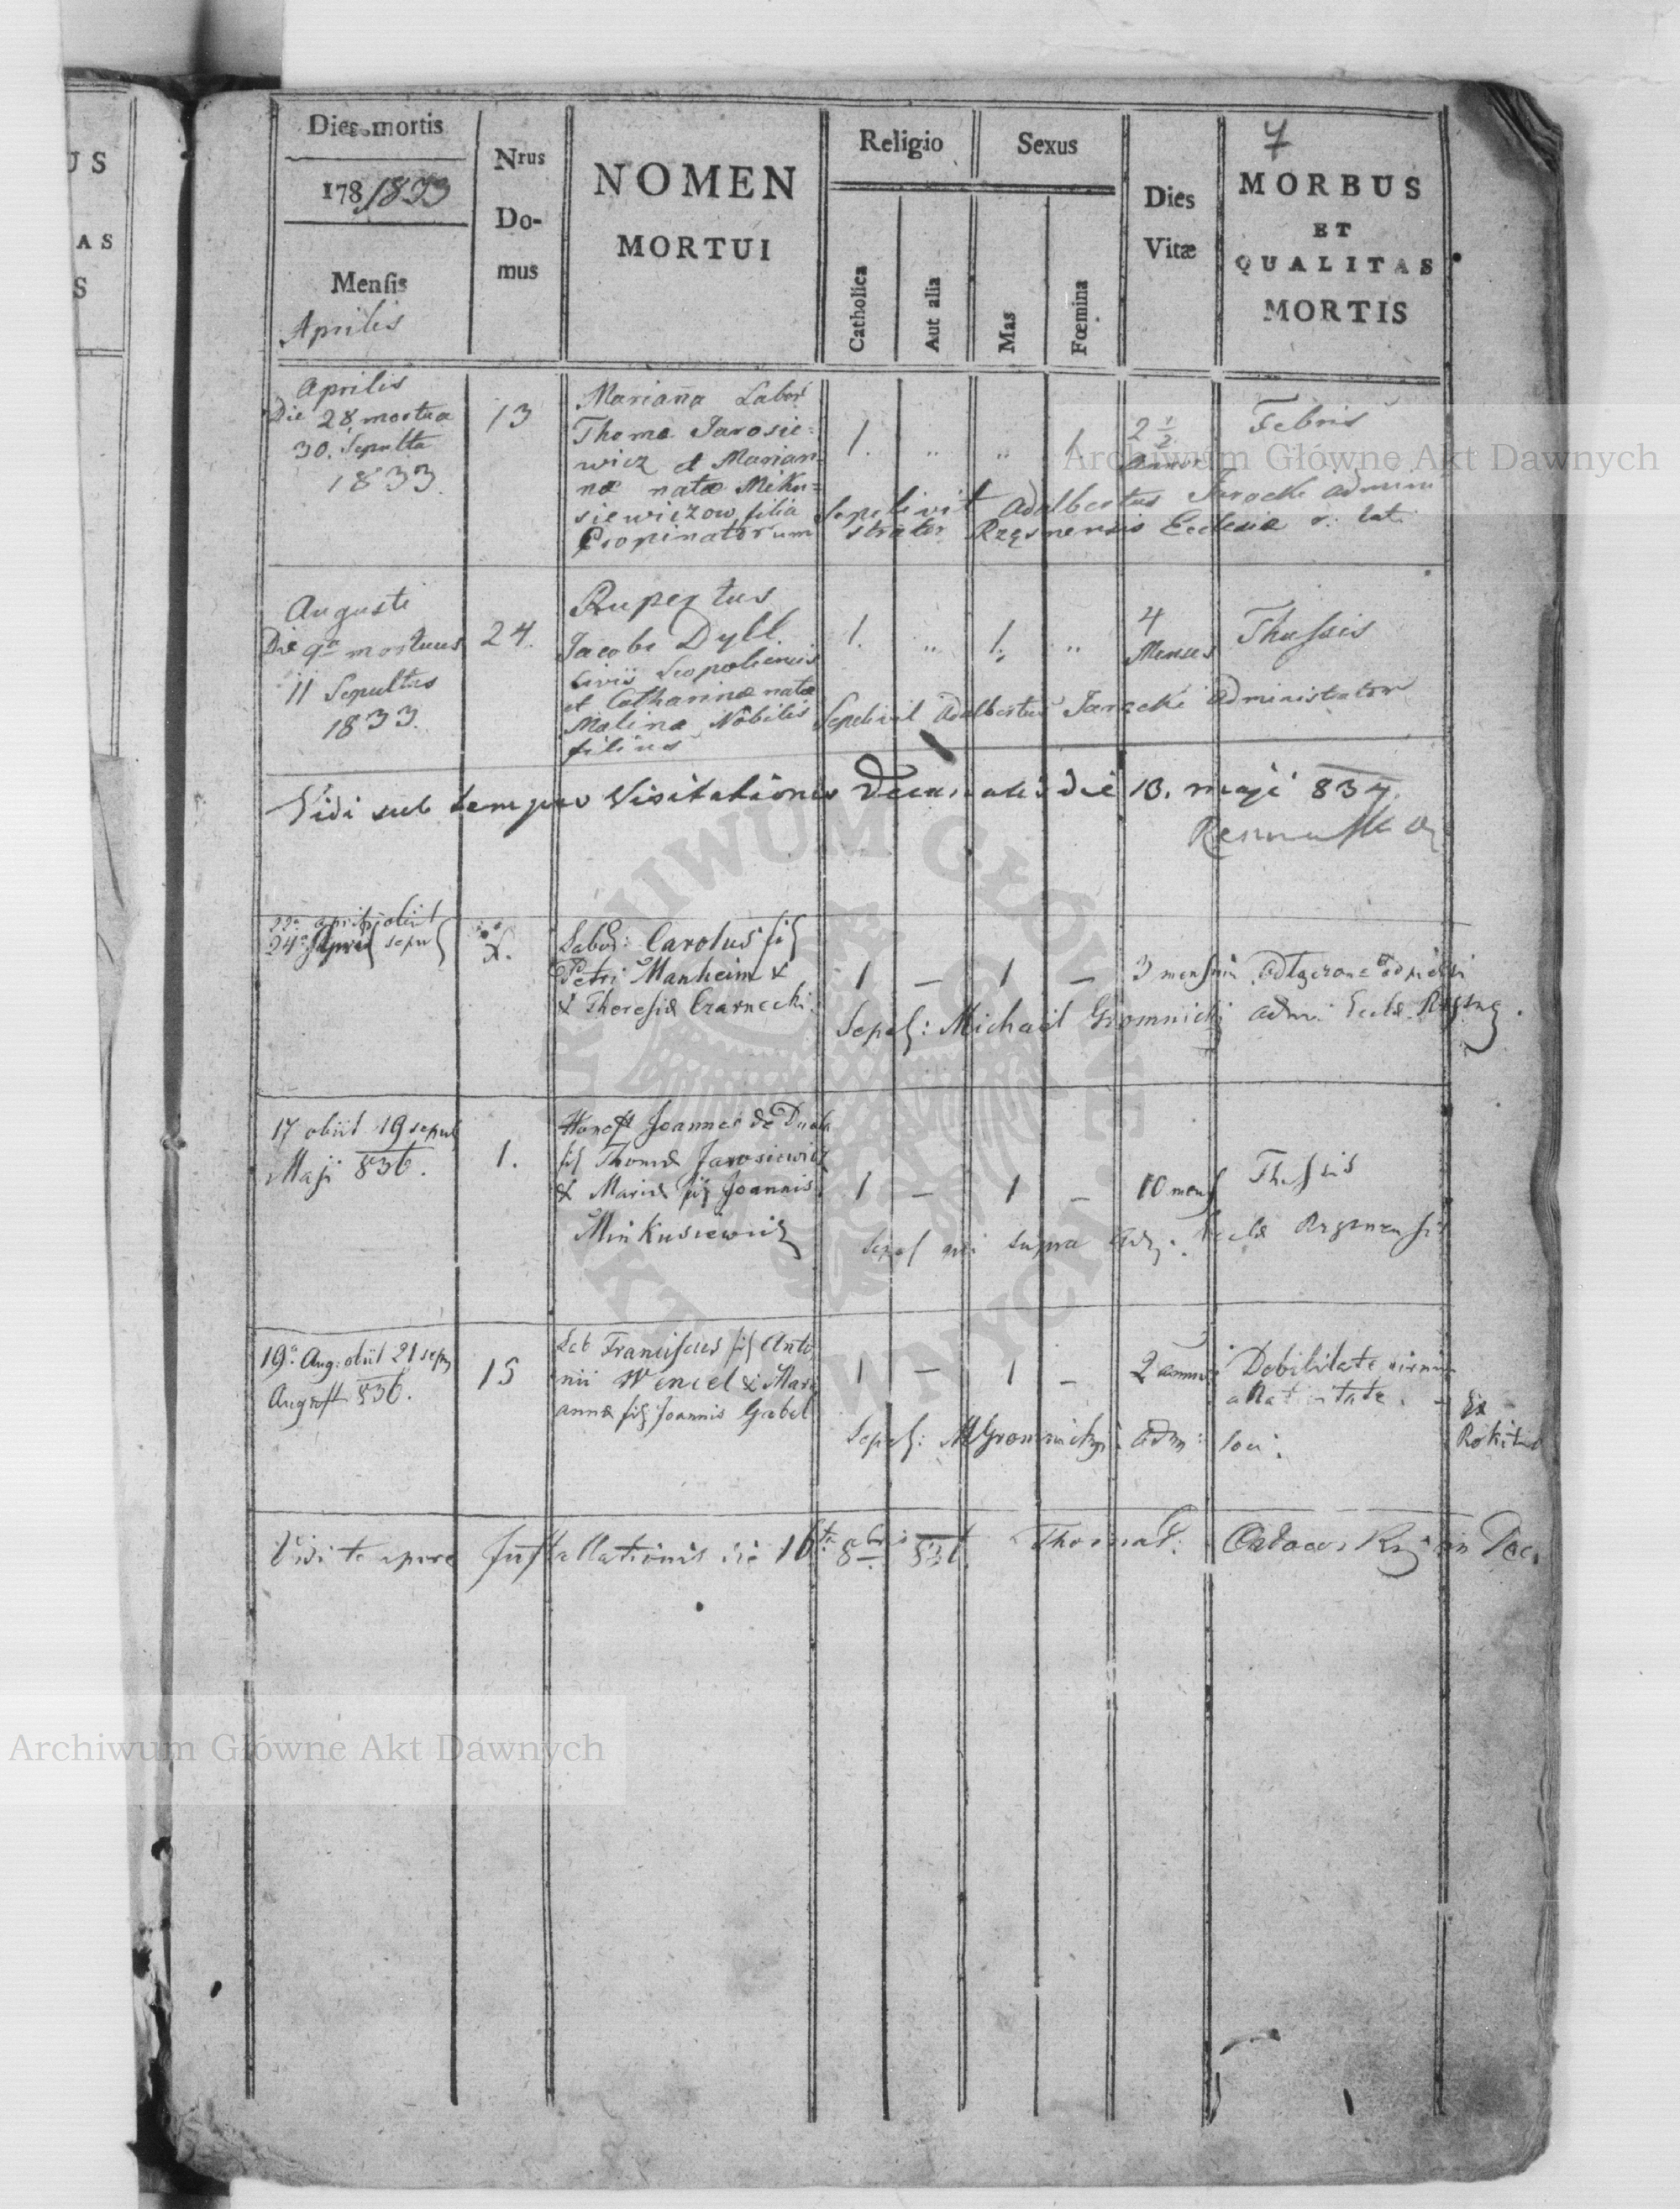 US
AS
S
Dies mortis
178 1833
Mensis
Aprilis
Nrus
Do-
mus
NOMEN
MORTUI
Religio
Catholica
Aut alia
Sexus
Mas
Fœmina
Dies
Vitæ
7
MORBUS
ET
QUALITAS
MORTIS
Aprilis
Die 28 mortua
30. Sepulta
1833.
13
Marianna Labor
Thomæ Jarosie=
wicz et Marian=
næ natæ Miku=
siewiczow filia
Propinatorum
1. „ „ 1.
2 1/2
annor
Febris
Sepelivit Adalbertus Jarocki Admini
strator Rzęsnensis Ecclesiæ r. lat.
Augusti
Die 9a mortuus
11 Sepultus
1833.
24.
Rupertus
Jacobi Dyll.
civis Leopoliensis
et Catharinæ natæ
Malina Nobilis
filius
1. „ 1. „
4
Menses
Thussis
Sepelivit Adalbertus Jarocki Administrator
Vidi sub tempus Visitationis Decanalis die 13. maji 834.
22a aprilis obiit
24a sepul
Labor: Carolus fil
Petri Manheim &
& Theresiæ Czarnecki
1 — 1 —
3 mensium
Sepel: Michael Gromnicki adm. Eccle.
17 obiit 19 sepul
Maji 836.
1.
Honest Joannes de Dukla
fil Thomæ Jarosiewicz
& Mariæ fil Joannis
Minkusiewicz
1 — 1 —
10 mens
Thussis
Sepel qui supra
19a Aug: obiit 21 sepul
Augusti 836.
15
Lab Franciscus fil Anto
nii Wencel & Mari
annæ fil Joannis Gabel
1 — 1 —
2 annor
Debilitate
a Nativitate.
Ex
Rokitno
Sepel: M Gromnicki adm: loci.
Vidi tempore Installationis die 16ta 8bris 836. Thomas
Archiwum Główne Akt Dawnych
ARCHIWUM GŁÓWNE AKT DAWNYCH
Archiwum Główne Akt Dawnych